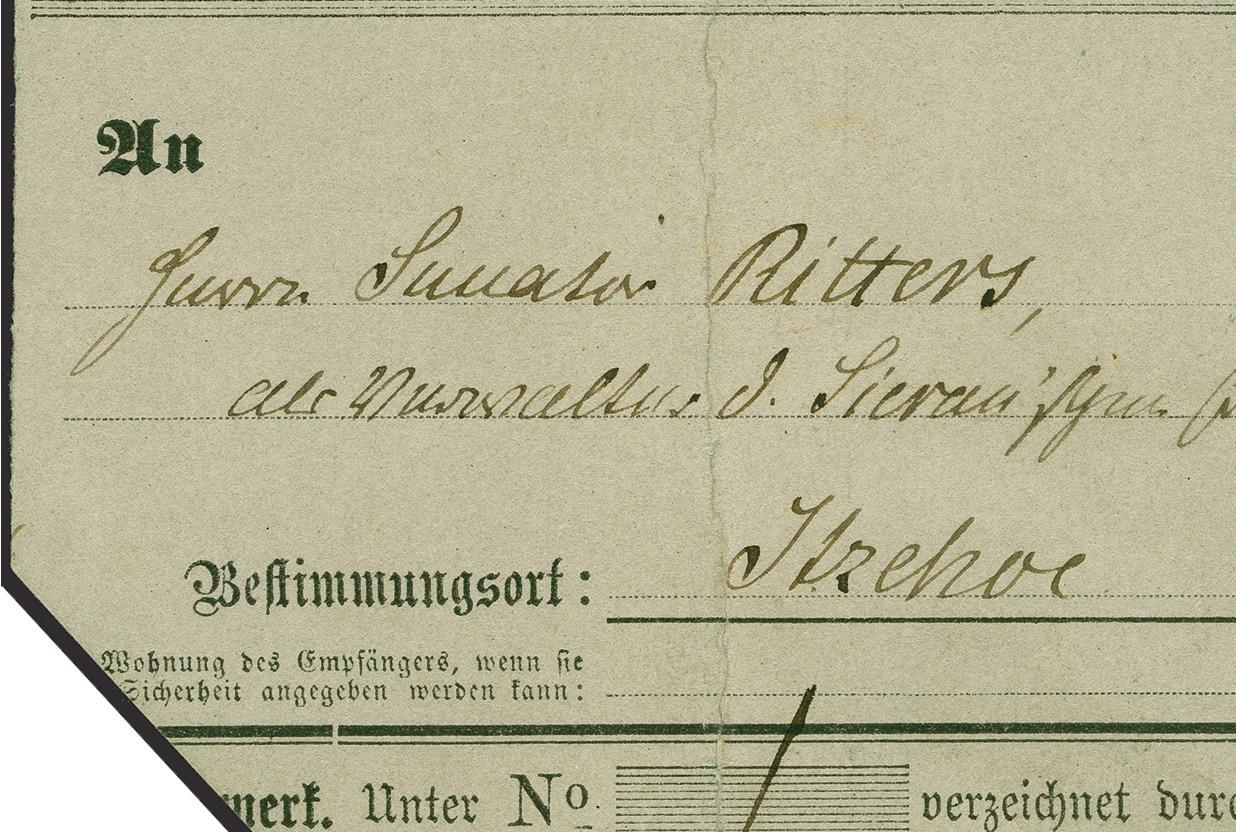 An
Herrn Senator Ritters,
als Verwalter d. Sierau'schen
Itzehoe
Bestimmungsort:
Wohnung des Empfängers, wenn sie
Sicherheit angegeben werden kann:
merk. Unter No verzeichnet durc